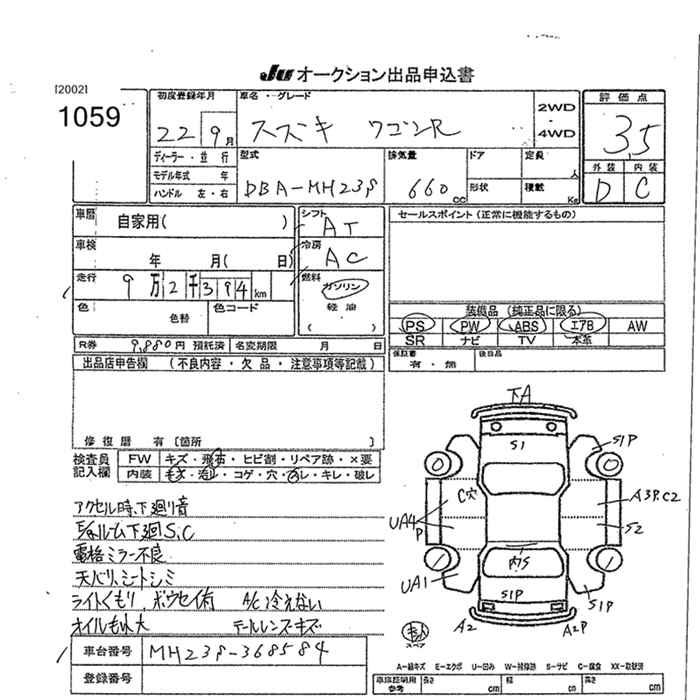 JU オークション出品申込書
[2002]
1059
初度登録年月
22 9月
車名・グレード
スズキ ワゴンR
2WD
4WD
評価点
3.5
外装 内装
D C
ディーラー・並行
モデル年式 年
ハンドル 左・右
型式
DBA-MH23S
排気量
660 cc
ドア
形状
定員 人
積載 Kg
車歴 自家用( )
シフト AT
車検 年 月( 日)
冷房 AC
走行 9万2千394km
燃料 ガソリン
軽油
( )
色 色替
色コード
セールスポイント (正常に機能するもの)
装備品 (純正品に限る)
PS PW ABS エアB AW
SR ナビ TV 本革
R券 9,880円 預託済 名変期限 月 日
保証書 有・無
後日品
出品店申告欄 (不良内容・欠品・注意事項等記載)
修復歴 有〔箇所 〕
検査員記入欄
FW キズ・飛石・ヒビ割・リペア跡・×要
内装 キズ・汚れ・コゲ・穴・ヌレ・キレ・破レ
アクセル時、下廻り音
下廻S,C
電格ミラー不良
天バリ、シートシミ
ライトくもり、 A/C 冷えない
オイルもれ大 テールレンズキズ
車台番号 MH23S-368584
登録番号
下A
S1
S1P
C穴
A3P,C2
UA4P
S2
内S
UA1
S1P
S1P
A2
A2P
スペア
A-線キズ E-エクボ U-凹み W-補修跡 S-サビ C-腐食 XX-取替済
車庫証明用参考 長さ cm 幅 cm 高さ cm